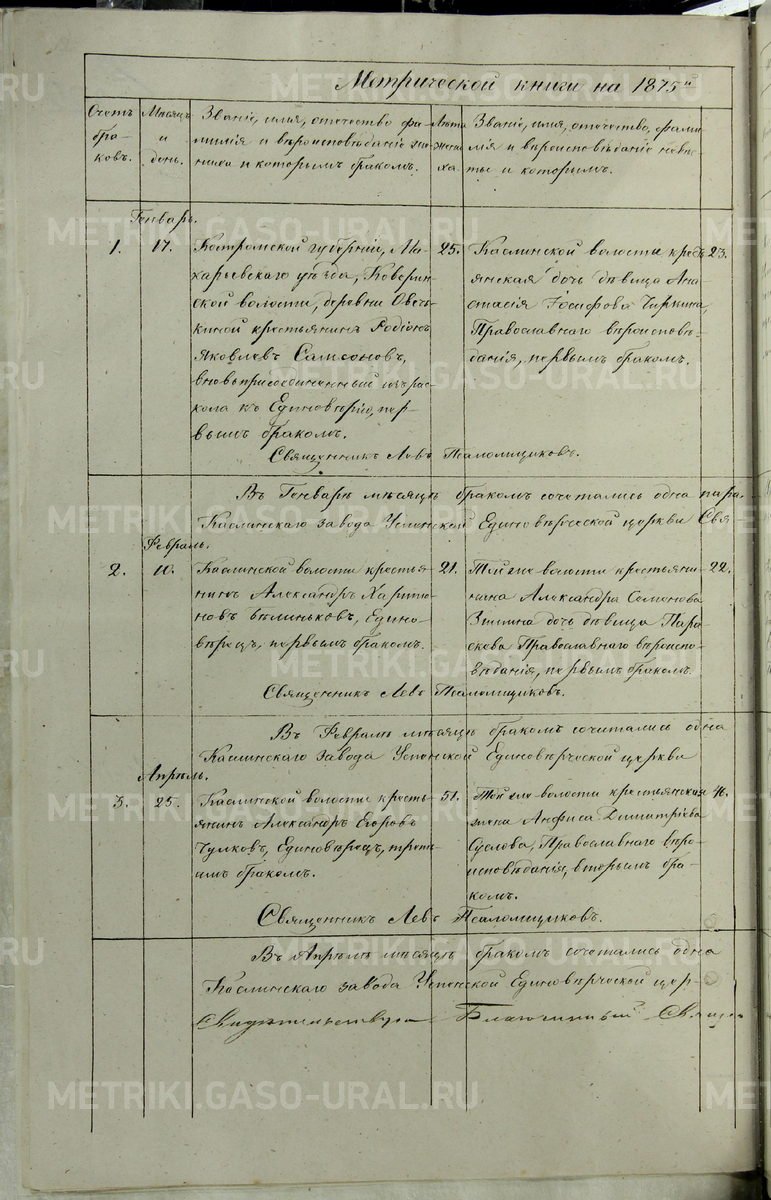 Метрической книги на 1875й
Счетъ браковъ.
Мѣсяцъ и день.
Званіе, имя, отечество, фамилія и вѣроисповѣданіе жениха и которымъ бракомъ.
Лѣта жениха.
Званіе, имя, отечество, фамилія и вѣроисповѣданіе невѣсты и которымъ.
Генварь.
1.
17.
Костромской губерніи, Ма-
карьевскаго уѣзда, Ковернин-
ской волости, деревни Овечь-
киной крестьянинъ Родіонъ
Яковлевъ Самсоновъ,
вновьприсоединенный изъ рас-
кола къ Единовѣрію, пер-
вымъ бракомъ.
25.
Каслинской волости крестъ-
янская дочь дѣвица Ана-
стасія Іосифова Чиркина,
Православнаго вѣроисповѣ-
данія, первымъ бракомъ.
23.
Священникъ Левъ Псаломщиковъ.
Въ Генварѣ мѣсяцѣ бракомъ сочетались одна пара.
Каслинскаго завода Успенской Единовѣрческой церкви Свя-
Февраль.
2.
10.
Каслинской волости крестья-
нинъ Александръ Харито-
новъ Бѣлиньковъ, Едино-
вѣрецъ, первымъ бракомъ.
21.
Той же волости крестьяни-
на Александра Семенова
Зимина дочь дѣвица Пара-
скева Православнаго вѣроиспо-
вѣданія, первымъ бракомъ.
22.
Священникъ Левъ Псаломщиковъ.
Въ Февралѣ мѣсяцѣ бракомъ сочитались одна
Каслинскаго завода Успенской Единовѣрческой церкви
Апрѣль.
3.
25.
Каслинской волости кресть-
янинъ Александръ Егоровъ
Чулковъ, Единовѣрецъ, треть-
имъ бракомъ.
51.
Той же волости крестьянская
жена Анфиса Димитріева
Суслова, Православнаго вѣро-
исповѣданія, вторымъ бра-
комъ.
46.
Священникъ Левъ Псаломщиковъ.
Въ Апрѣлѣ мѣсяцѣ бракомъ сочетались одна
Каслинскаго завода Успенской Единовѣрческой цер-
Свидѣтельствовалъ Благочинный Священ
METRIKI.GASO-URAL.RU